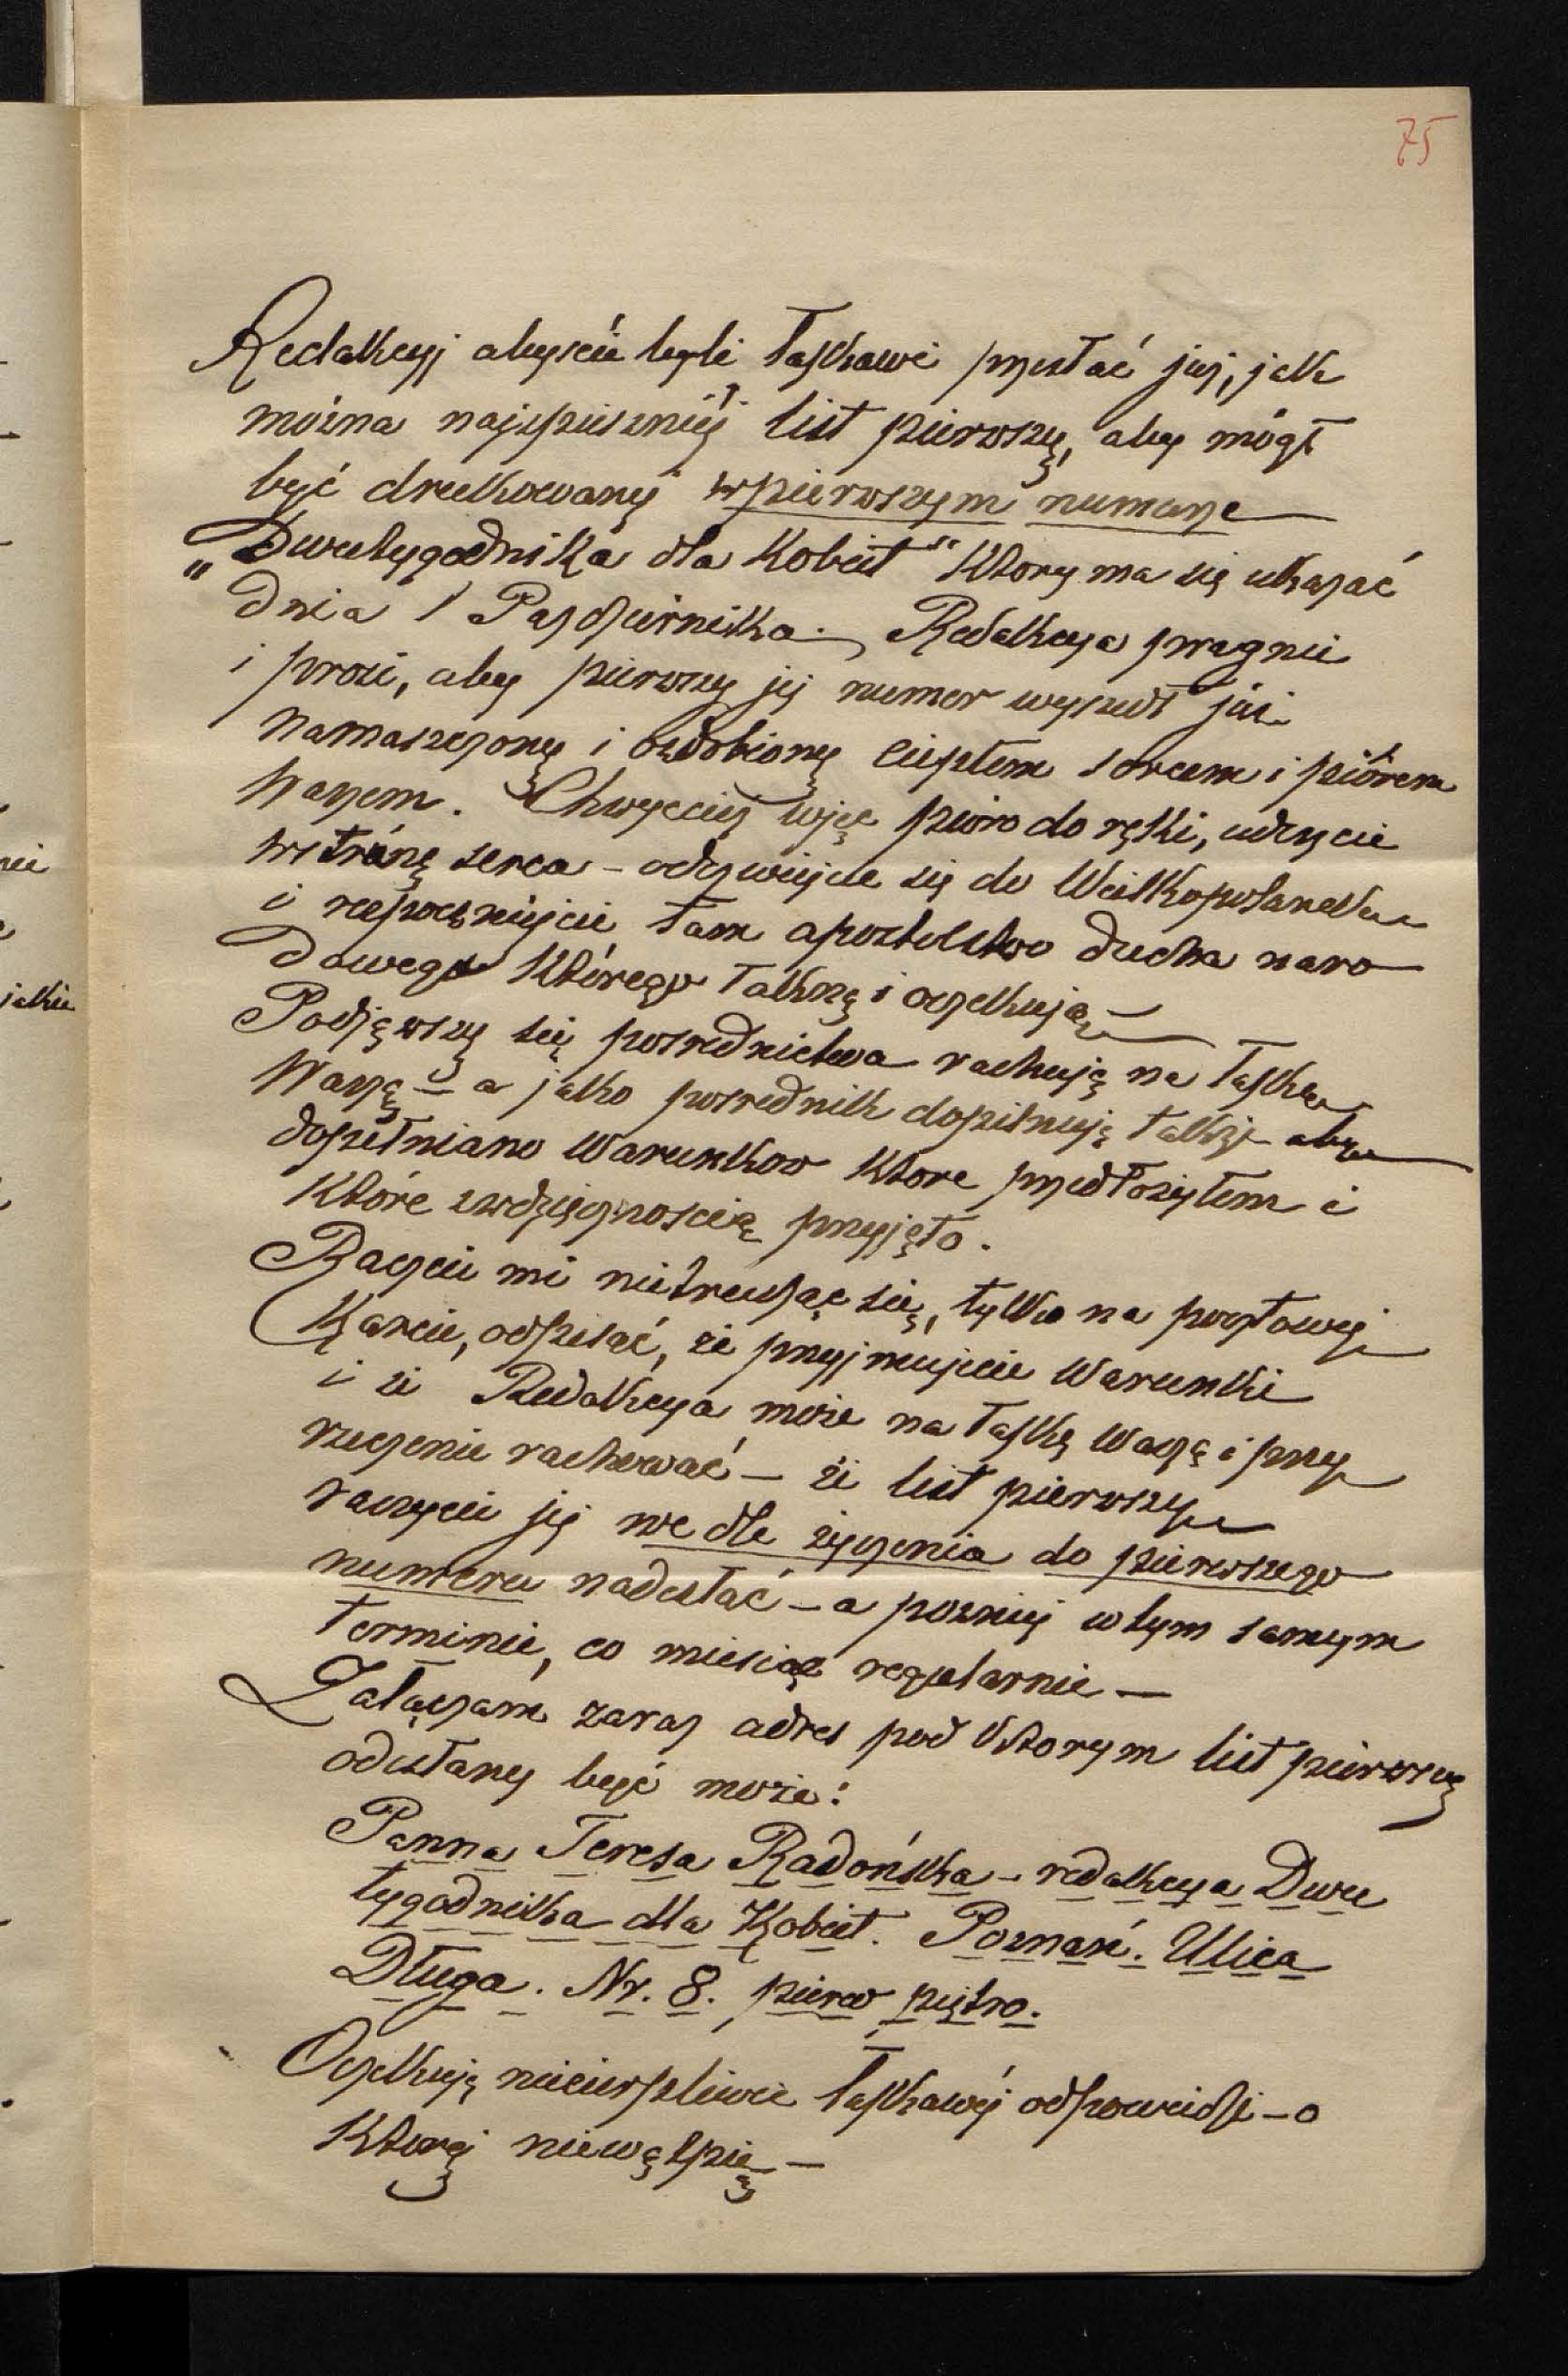 75
Redakcyj abyście byli łaskawi przesłać jej, jak
można najspieszniéj list pierwszy, aby mógł
być drukowany w pierwszym numerze
„Dwutygodnika dla Kobiet" ktory ma się ukazać
dnia 1 Pazdziernika. Redakcya pragnie
i prosi, aby pierwszy jej numer wyszedł już
namaszczony i ozdobiony ciepłem sercem i piórem
Waszem. Chwyćcież więc pióro do ręki, uderzcie
w strónę serca – odezwijcie się do Wielkopolanek
i rozpocznijcie tam apostolstwo ducha naro
dowego którego łakną i oczekują –
Podjąwszy się posrednictwa rachuję na łaskę
Waszę – a jako posrednik dopilnuję także aby
dopełniano warunkow ktore przedłożyłem i
które z wdzięcznoscią przyjęto.
Raczcie mi nie trudząc się, tylko na pocztowej
Karcie, odpisać, że przyjmujecie warunki
i że Redakcya może na łaskę Waszę i przy
rzeczenie rachować – że list pierwszy
raczycie jej wedle życzenia do pierwszego
numeru nadesłać – a pozniej w tym samym
terminie, co miesiąc regularnie –
Załączam zaraz adres pod ktorym list pierwszy
odesłany być może:
Panna Teresa Radońska – redakcya Dwu
tygodnika dla Kobiet. Poznań. Ulica
Długa. Nr. 8. pierw piętro.
Oczekuję niecierpliwie łaskawéj odpowiedzi – o
ktorej niewątpię –
nie
jakie